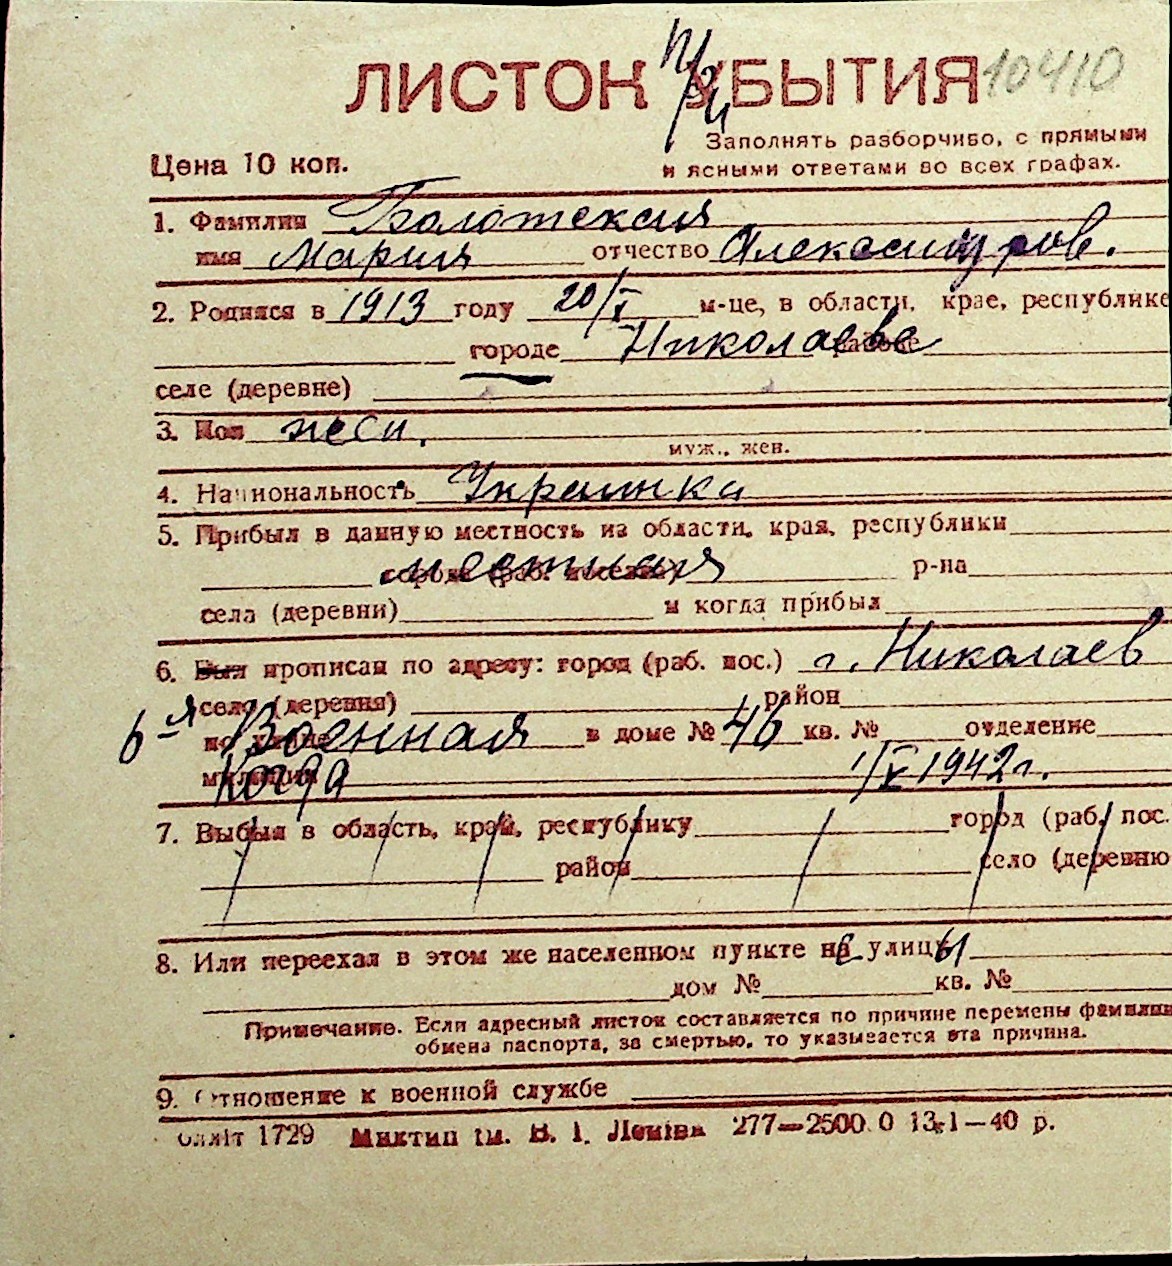 ЛИСТОК УБЫТИЯ 10410
Заполнять разборчиво, с прямыми
Цена 10 коп. и ясными ответами во всех графах.
1. Фамилия
имя Мария отчество Александров.
2. Родился в 1913 году 20/V м-це, в области, крае, республике
городе Николаеве районе
селе (деревне)
3. Пол жен.
муж., жен.
4. Национальность Украинка
5. Прибыл в данную местность из области, края, республики
города (раб. поселка) местная р-на
села (деревни) и когда прибыл
6. Был прописан по адресу: город (раб. пос.) г. Николаев
село (деревня) район
по улице 6-я Военная в доме № 46 кв. № отделение
милиции Когда 1/V 1942 г.
7. Выбыл в область, край, республику город (раб. пос.
район село (деревню
8. Или переехал в этом же населенном пункте на улицы
дом № кв. №
Примечание. Если адресный листок составляется по причине перемены фамилии
обмена паспорта, за смертью, то указывается эта причина.
9. Отношение к военной службе
1729 Миктип ім. В. І. Леніна 277—2500 0 13.1—40 р.